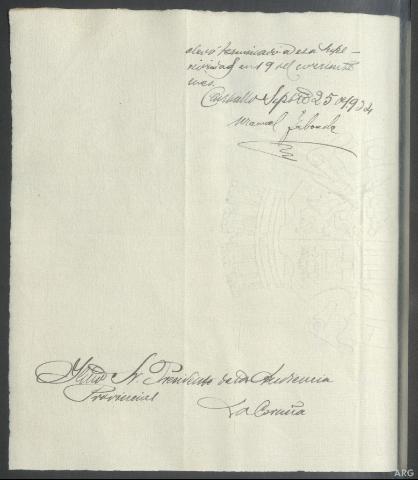 elevó terminado a esa Supe-
rioridad en 19 del corriente
mes.
Carballo Sepbre 25 de 1924
Manuel Taboada
Iltmo Sr. Presidente de la Audiencia
Provincial
La Coruña
ARG